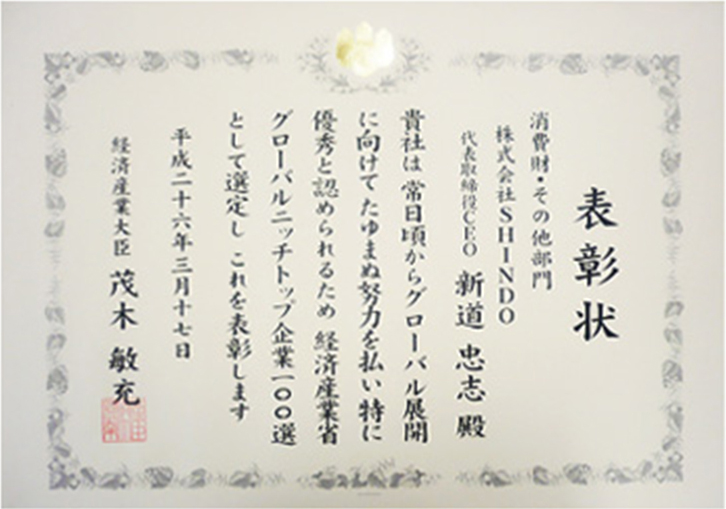 表彰状
消費財・その他部門
株式会社SHINDO
代表取締役CEO 新道 忠志 殿
貴社は 常日頃からグローバル展開
に向けて たゆまぬ努力を払い 特に
優秀と認められるため 経済産業省
グローバルニッチトップ企業一〇〇選
として選定し これを表彰します
平成二十六年三月十七日
経済産業大臣 茂木 敏充